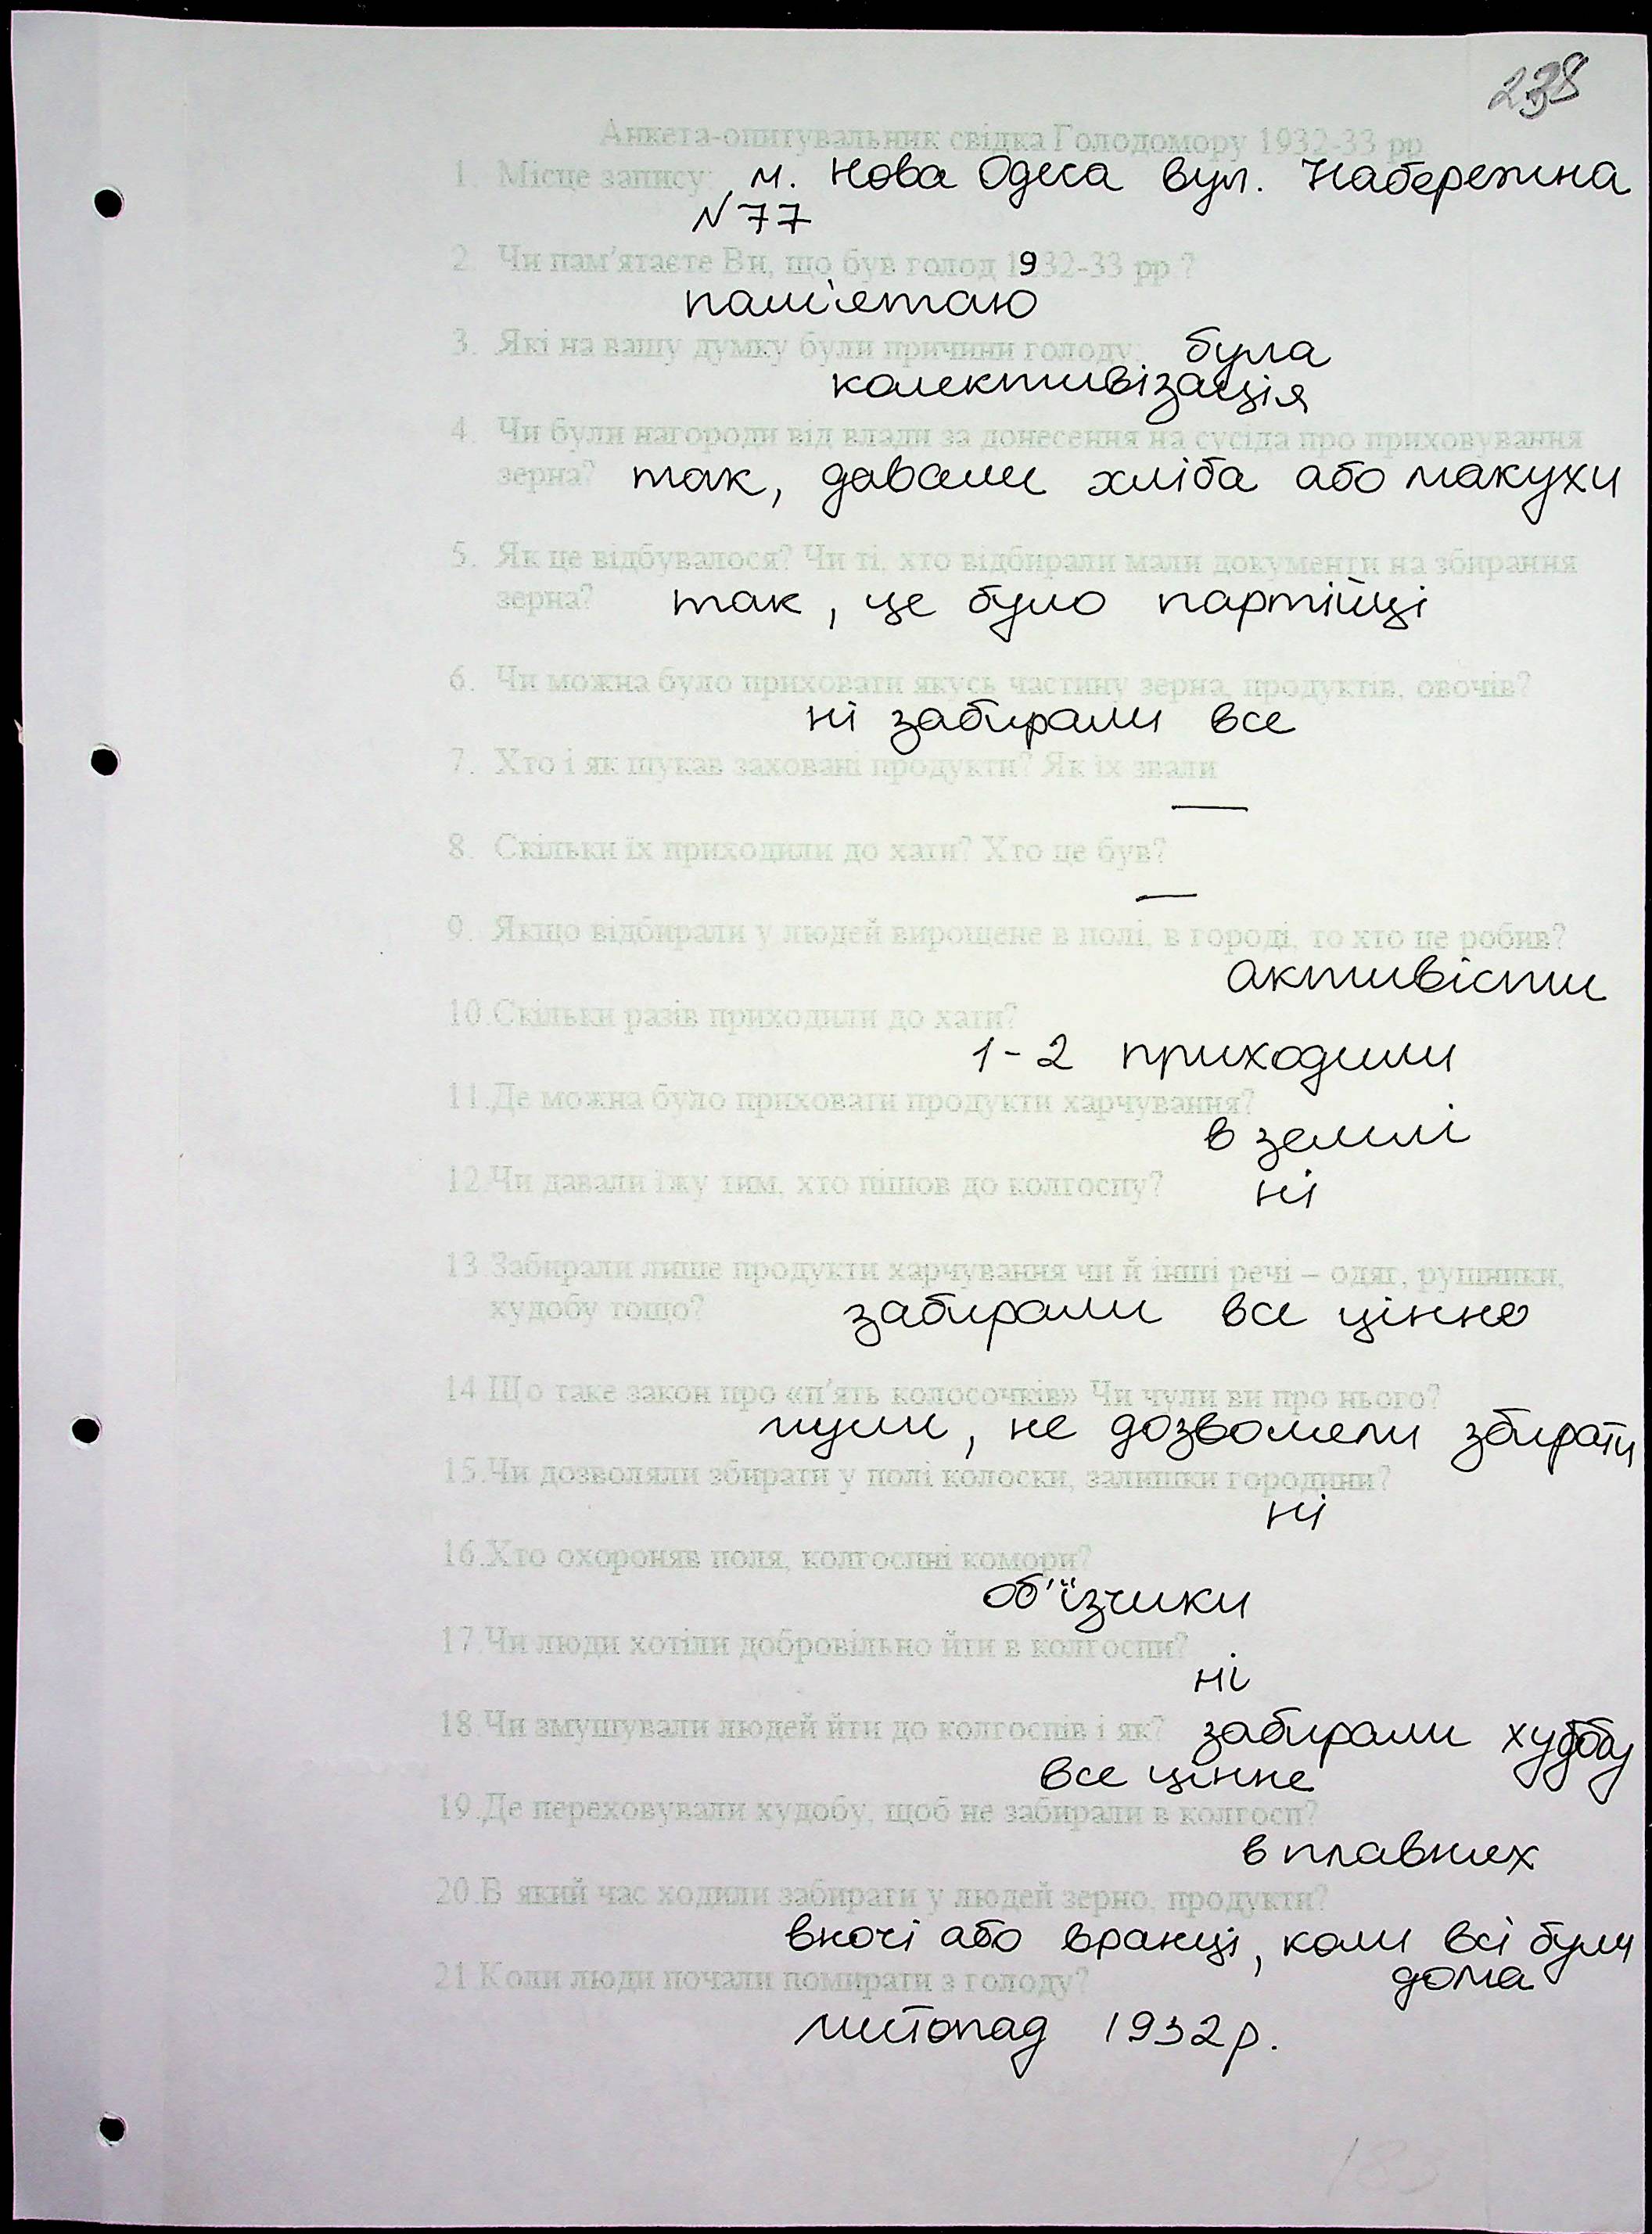 238
Анкета-опитувальник свідка Голодомору 1932-33 рр
1. Місце запису: м. Нова Одеса вул. Набережна
№77
2. Чи пам'ятаєте Ви, що був голод 1932-33 рр.?
пам'ятаю
3. Які на вашу думку були причини голоду: була
колективізація
4. Чи були нагороди від влади за донесення на сусіда про приховування
зерна? так, давали хліба або макухи
5. Як це відбувалося? Чи ті, хто відбирали мали документи на збирання
зерна? так, це було партійці
6. Чи можна було приховати якусь частину зерна, продуктів, овочів?
ні забирали все
7. Хто і як шукав заховані продукти? Як їх звали
—
8. Скільки їх приходили до хати? Хто це був?
—
9. Якщо відбирали у людей вирощене в полі, в городі, то хто це робив?
активісти
10.Скільки разів приходили до хати?
1-2 приходили
11.Де можна було приховати продукти харчування?
в землі
12.Чи давали їжу тим, хто пішов до колгоспу? ні
13.Забирали лише продукти харчування чи й інші речі – одяг, рушники,
худобу тощо? забирали все цінне
14.Що таке закон про «п'ять колосочків» Чи чули ви про нього?
чули, не дозволяли збирати
15.Чи дозволяли збирати у полі колоски, залишки городини?
ні
16.Хто охороняв поля, колгоспні комори?
об'їзчики
17.Чи люди хотіли добровільно йти в колгоспи?
ні
18.Чи змушували людей йти до колгоспів і як? забирали худобу
все цінне
19.Де переховували худобу, щоб не забирали в колгосп?
в плавнях
20.В який час ходили забирати у людей зерно, продукти?
вночі або вранці, коли всі були
21.Коли люди почали помирати з голоду? дома
листопад 1932р.
183